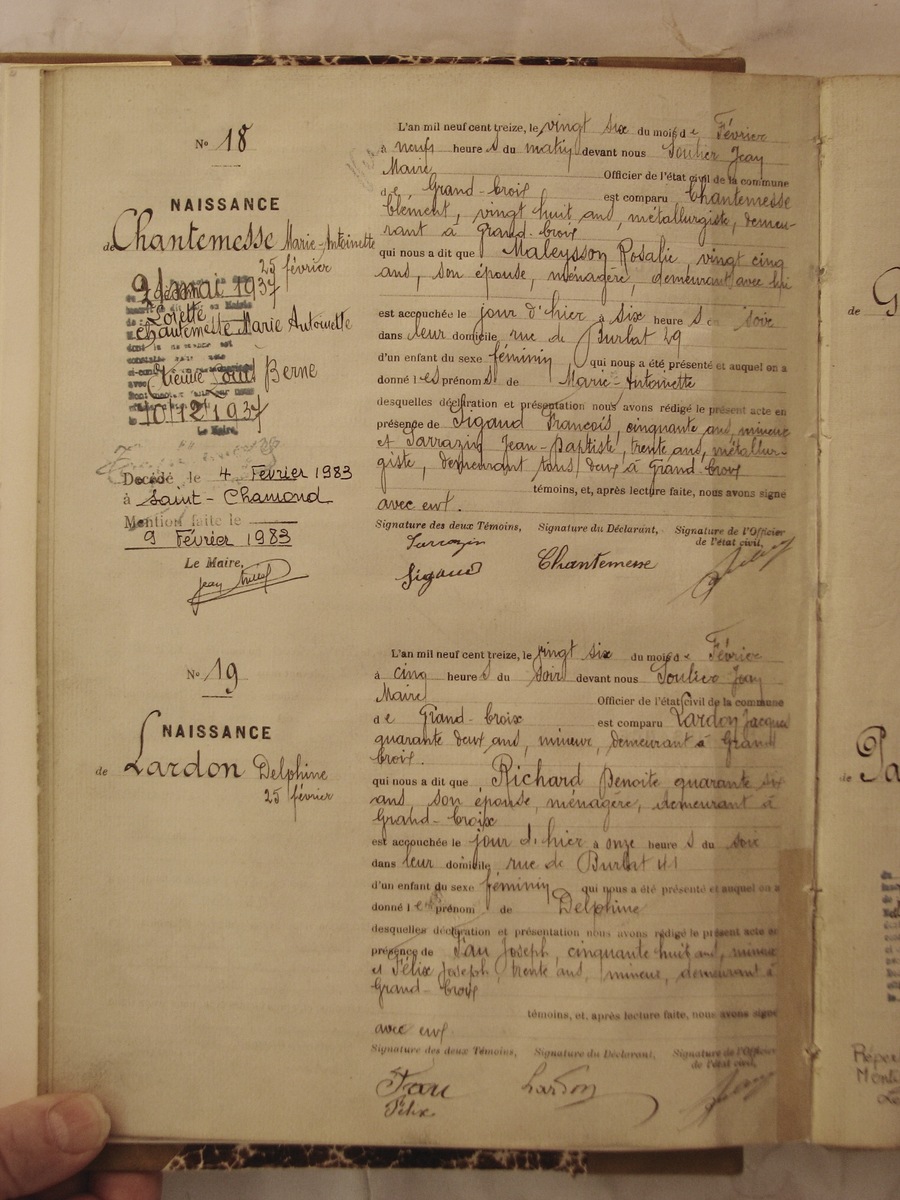 N° 18
NAISSANCE
de Chantemesse Marie-Antoinette
25 février
2 mai 1937
Lorette
Chantemesse Marie Antoinette
Etienne Louis Berne
10/12 1937
Le Maire,
Décédé le 4 Février 1983
à Saint-Chamond
Mention faite le
9 Février 1983
Le Maire,
L'an mil neuf cent treize, le vingt six du mois de Février
à neuf heures du matin devant nous Soulier Jean
Maire Officier de l'état civil de la commune
de Grand-Croix est comparu Chantemesse
Clément, vingt huit ans, métallurgiste, demeu-
rant à Grand-Croix
qui nous a dit que Maleysson Rosalie, vingt cinq
ans, son épouse, ménagère, demeurant avec lui
est accouchée le jour d'hier à six heures du soir
dans leur domicile, rue de Burlat 29
d'un enfant du sexe féminin qui nous a été présenté et auquel on a
donné les prénoms de Marie-Antoinette
desquelles déclaration et présentation nous avons rédigé le présent acte en
présence de Sigaud François, cinquante ans, mineur
et Sarrazin Jean-Baptiste, trente ans, métallur-
giste, demeurant tous deux à Grand-Croix
témoins, et, après lecture faite, nous avons signé
avec eux.
Signature des deux Témoins, Signature du Déclarant, Signature de l'Officier
de l'état civil,
Sarrazin
Sigaud Chantemesse
N° 19
NAISSANCE
de Lardon Delphine
25 février
L'an mil neuf cent treize, le vingt six du mois de Février
à cinq heures du soir devant nous Soulier Jean
Maire Officier de l'état civil de la commune
de Grand-Croix est comparu Lardon Jacques
quarante deux ans, mineur, demeurant à Grand
Croix.
qui nous a dit que Richard Benoite quarante six
ans, son épouse, ménagère, demeurant à
Grand-Croix
est accouchée le jour d'hier à onze heures du soir
dans leur domicile, rue de Burlat 41
d'un enfant du sexe féminin qui nous a été présenté et auquel on a
donné le prénom de Delphine
desquelles déclaration et présentation nous avons rédigé le présent acte en
présence de Fau Joseph, cinquante huit ans, mineur
et Félix Joseph, trente ans, mineur, demeurant à
Grand-Croix
témoins, et, après lecture faite, nous avons signé
avec eux
Signature des deux Témoins, Signature du Déclarant, Signature de l'Officier
de l'état civil,
Fau Lardon
Félix
de
de